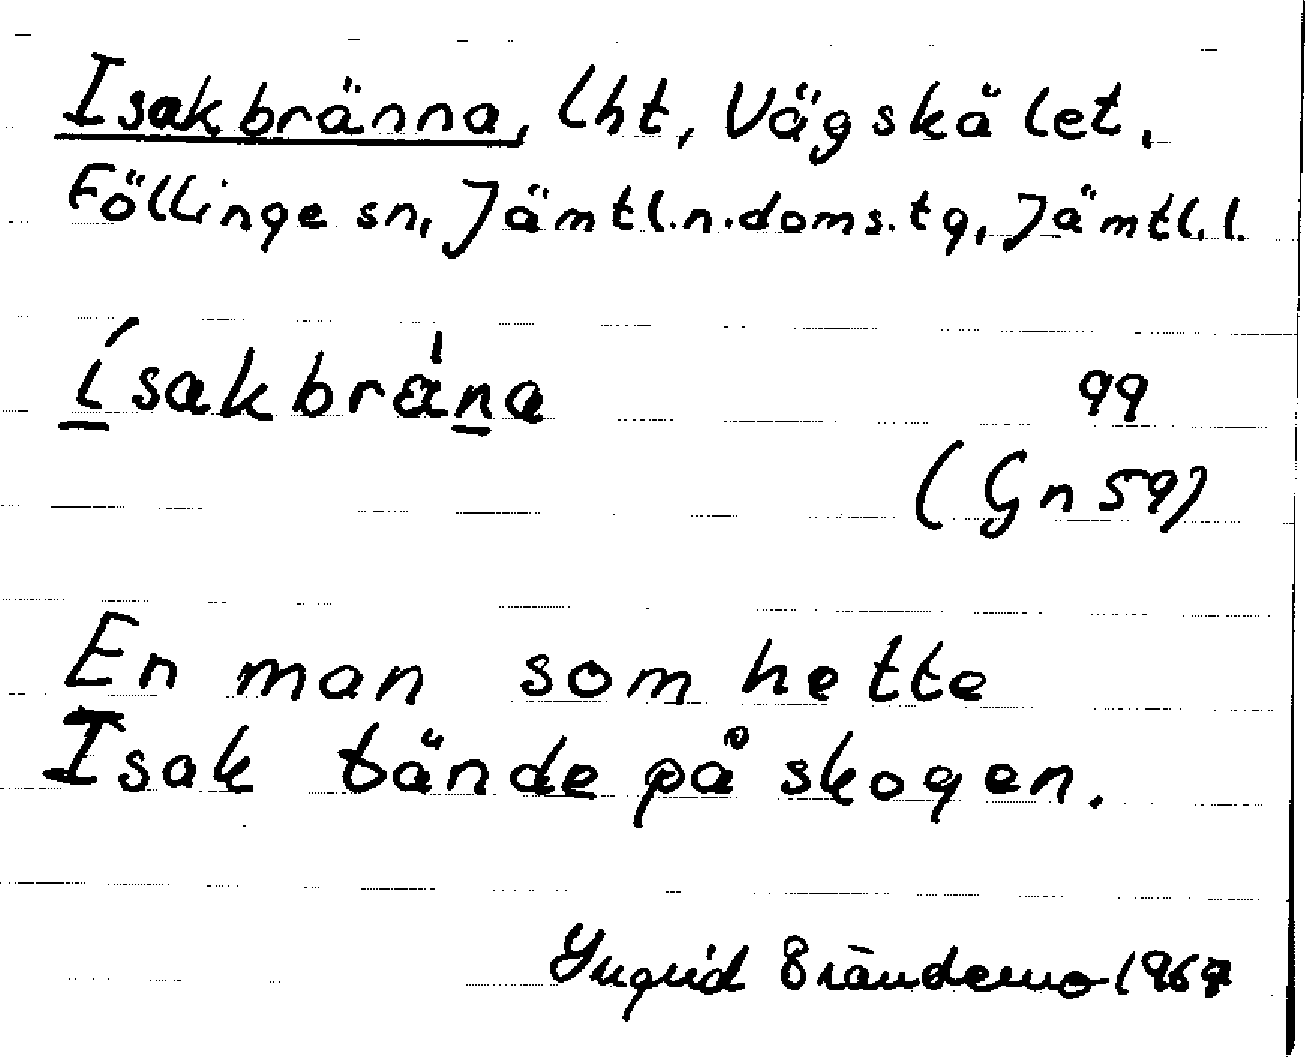 Isakbränna, lht, Vägskälet,
Föllinge sn, Jämtl.n.doms.tg, Jämtl.l.
í̲sakbrä̀n̲a
99
(Gn 59)
En man som hette
Isak tände på skogen.
Yngrid Brändemo 1967